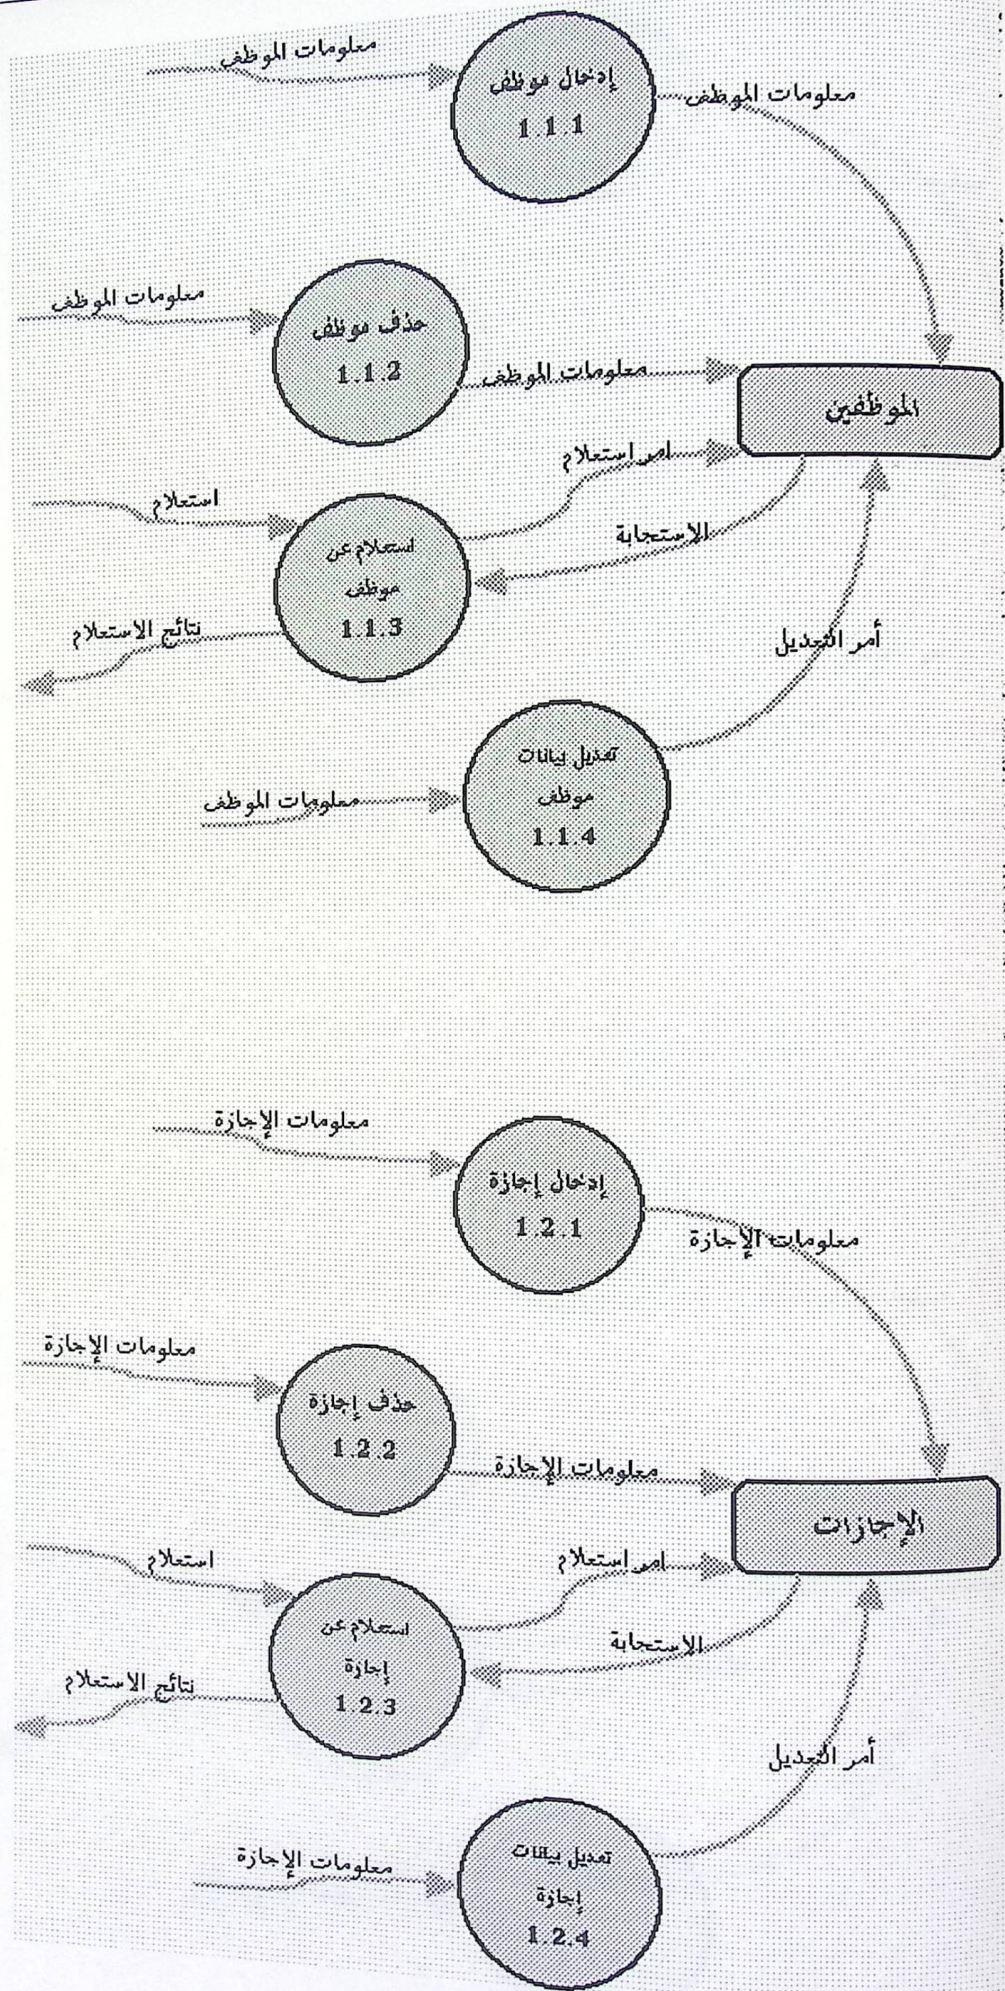 معلومات الموظف
إدخال موظف
1.1.1
معلومات الموظف
معلومات الموظف
حذف موظف
1.1.2
معلومات الموظف
الموظفين
امر استعلام
استعلام
الاستجابة
استعلام عن
موظف
1.1.3
نتائج الاستعلام
أمر التعديل
تعديل بيانات
موظف
1.1.4
معلومات الموظف
معلومات الإجازة
إدخال إجازة
1.2.1
معلومات الإجازة
معلومات الإجازة
حذف إجازة
1.2.2
معلومات الإجازة
الإجازات
امر استعلام
استعلام
الاستجابة
استعلام عن
إجازة
1.2.3
نتائج الاستعلام
أمر التعديل
تعديل بيانات
إجازة
1.2.4
معلومات الإجازة